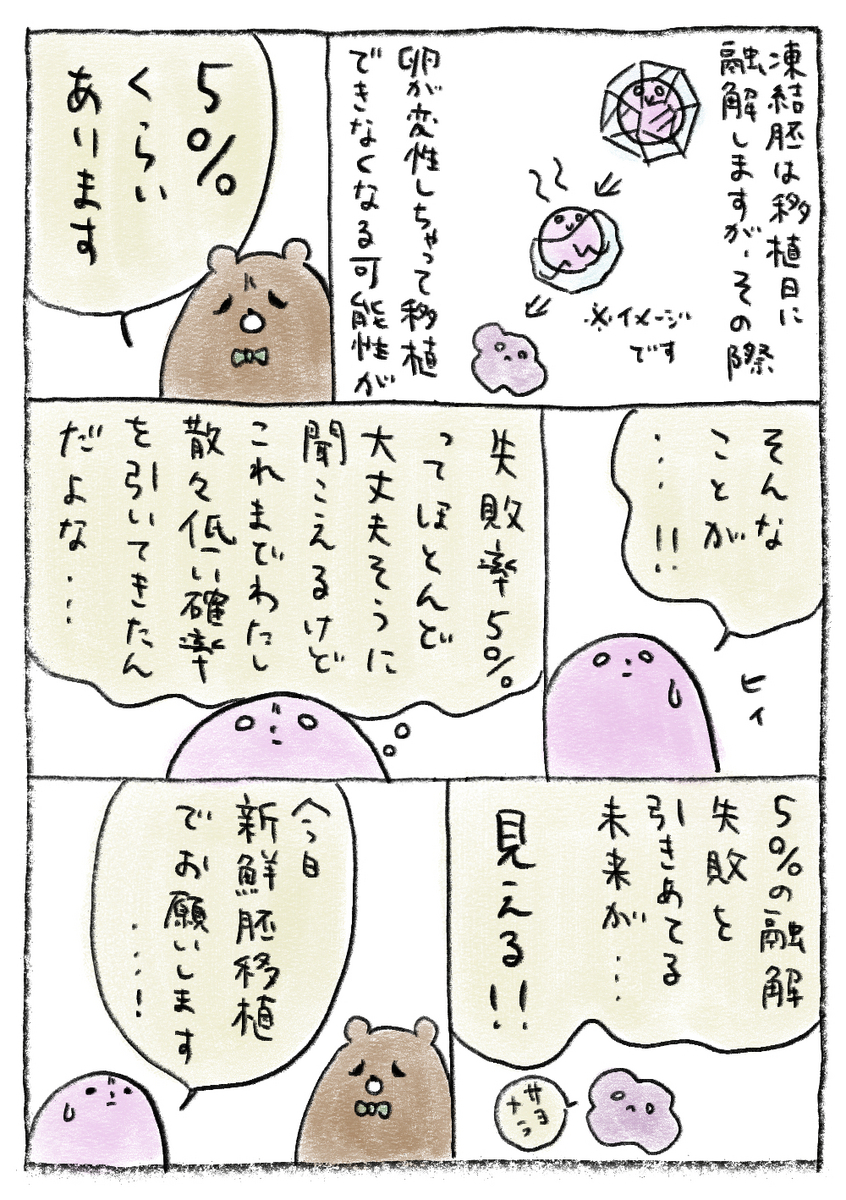 凍結胚は移植日に
融解しますが、その際
※イメージ
です
卵が変性しちゃって移植
できなくなる可能性が
5%
くらい
あります
そんな
ことが
…!!
ヒィ
失敗率5%
ってほとんど
大丈夫そうに
聞こえるけど
これまでわたし
散々低い確率
を引いてきたん
だよな…
5%の融解
失敗を
引きあてる
未来が…
見える!!
サヨ
ナラ
今日
新鮮胚移植
でお願いします
…!